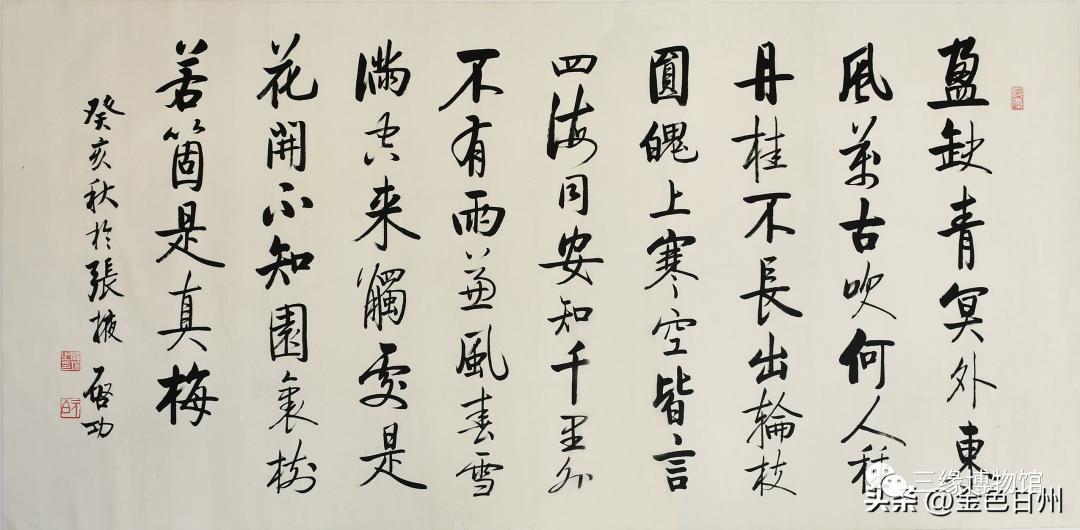 盈缺青冥外東
風萬古吹何人種
丹桂不長出輪枝
圓魄上寒空皆言
四海同安知千里外
不有雨兼風春雪
滿空来觸處是
花開不知園裏樹
若箇是真梅
癸亥秋於張掖 啓功
三缘博物馆
头条 @金色甘州